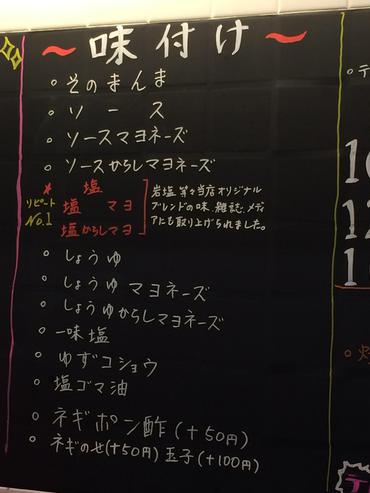 ～味付け～
○ そのまんま
○ ソース
○ ソースマヨネーズ
○ ソースからしマヨネーズ
* 塩
リピートNo.1
塩 マヨ
塩からしマヨ
岩塩、等々当店オリジナル
ブレンドの味、雑誌、メディ
アにも取り上げられました。
○ しょうゆ
○ しょうゆマヨネーズ
○ しょうゆからしマヨネーズ
○ 一味塩
○ ゆずコショウ
○ 塩ゴマ油
○ ネギポン酢(+50円)
○ ネギのせ(+50円) 玉子(+100円)